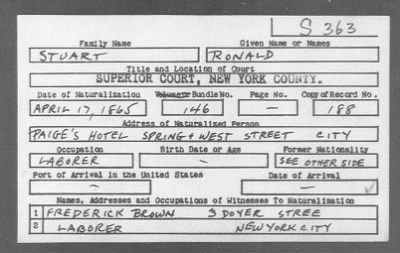 S 363
Family Name Given Name or Names
STUART RONALD
Title and Location of Court
SUPERIOR COURT, NEW YORK COUNTY.
Date of Naturalization Volume or Bundle No. Page No. Copy of Record No.
APRIL 17, 1865 146 — 188
Address of Naturalized Person
PAIGE'S HOTEL SPRING + WEST STREET CITY
Occupation Birth Date or Age Former Nationality
LABORER — SEE OTHER SIDE
Port of Arrival in the United States Date of Arrival
— —
Names, Addresses and Occupations of Witnesses To Naturalization
1 FREDERICK BROWN 3 DOYER STREE
2 LABORER NEW YORK CITY